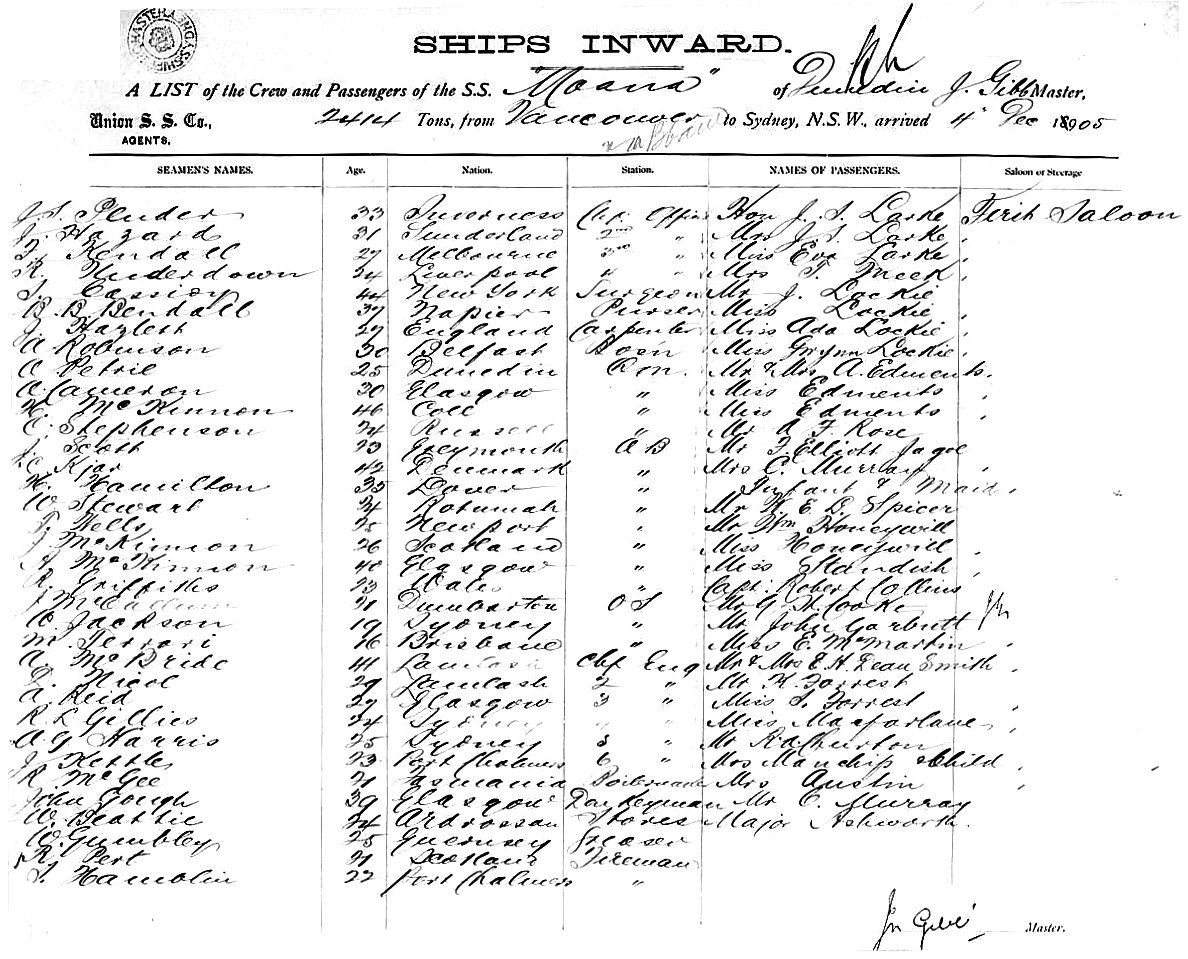 SHIPS INWARD.
A LIST of the Crew and Passengers of the S.S. "Moana" of Dunedin J. Gibb Master,
Union S. S. Co., 2414 Tons, from Vancouver to Sydney, N.S.W., arrived 4" Dec 1905
AGENTS.
SEAMEN'S NAMES. Age. Nation. Station. NAMES OF PASSENGERS. Saloon or Steerage
J. S. Plender 33 Inverness Chf. Offir Hon J. S. Larke First Saloon
J. Hazard 31 Sunderland 2nd " Mrs J. S. Larke "
Kendall 27 Melbourne 3rd " Miss Eva Larke "
R. Underdown 24 Liverpool 4 " Mrs T. Meek "
Cassidy 44 New York Surgeon Mr J. Lockie "
B. B. Bendall 37 Napier Purser Miss Lockie "
J. Hazlett 27 England Carpenter Miss Ada Lockie "
A Robinson 30 Belfast Bosn Miss Gwynn Lockie "
A Petrie 25 Dunedin Mr & Mrs A. Edments "
A Cameron 30 Glasgow " Miss Edments "
McKinnon 46 Coll " Miss Edments "
C. Stephenson 24 Russell " Mr A F. Rose
J. Scott 23 Greymouth A B Mr F. Elliott Jagoe
Kjar 42 Denmark " Mrs C. Murray "
H. Hamilton 35 Dover " Infant & Maid "
W Stewart 24 Rotumah " Mr H E B Spicer
Wells 25 Newport " Mr Wm Honeywill
J McKinnon 26 Scotland " Miss Honeywill "
A McKinnon 40 Glasgow " Miss Standish "
R. Griffiths 23 Wales " Capt. Robert Collins
J McCallum 21 Dumbarton O S Mr G. H. Cooke
W. Jackson 19 Sydney " Mr John Garbutt
M. Ferrari 16 Brisbane " Miss E. McMartin "
A. McBride 41 Lamlash Chf Eng Mr & Mrs E. H. Dean Smith "
D. Nicol 29 Lamlash 2 " Mr H. Forrest
A. Reid 27 Glasgow 3 " Miss S. Forrest "
R K Gillies 24 Sydney " " Miss Macfarlane "
A. G Harris 25 Sydney 5 " Mr
J Kettle 23 Port Chalmers 6 " Mrs Manchip & Child "
R McGee 21 Tasmania Mrs Austin "
John Gough 39 Glasgow Donkeyman Mr C. Murray
W. Beattie 24 Ardrossan Stores Major Ashworth.
W. Gumbley 25 Guernsey Greaser
R. Pert 21 Scotland Fireman
Hamblin 22 Port Chalmers "
Jn Gibb Master.